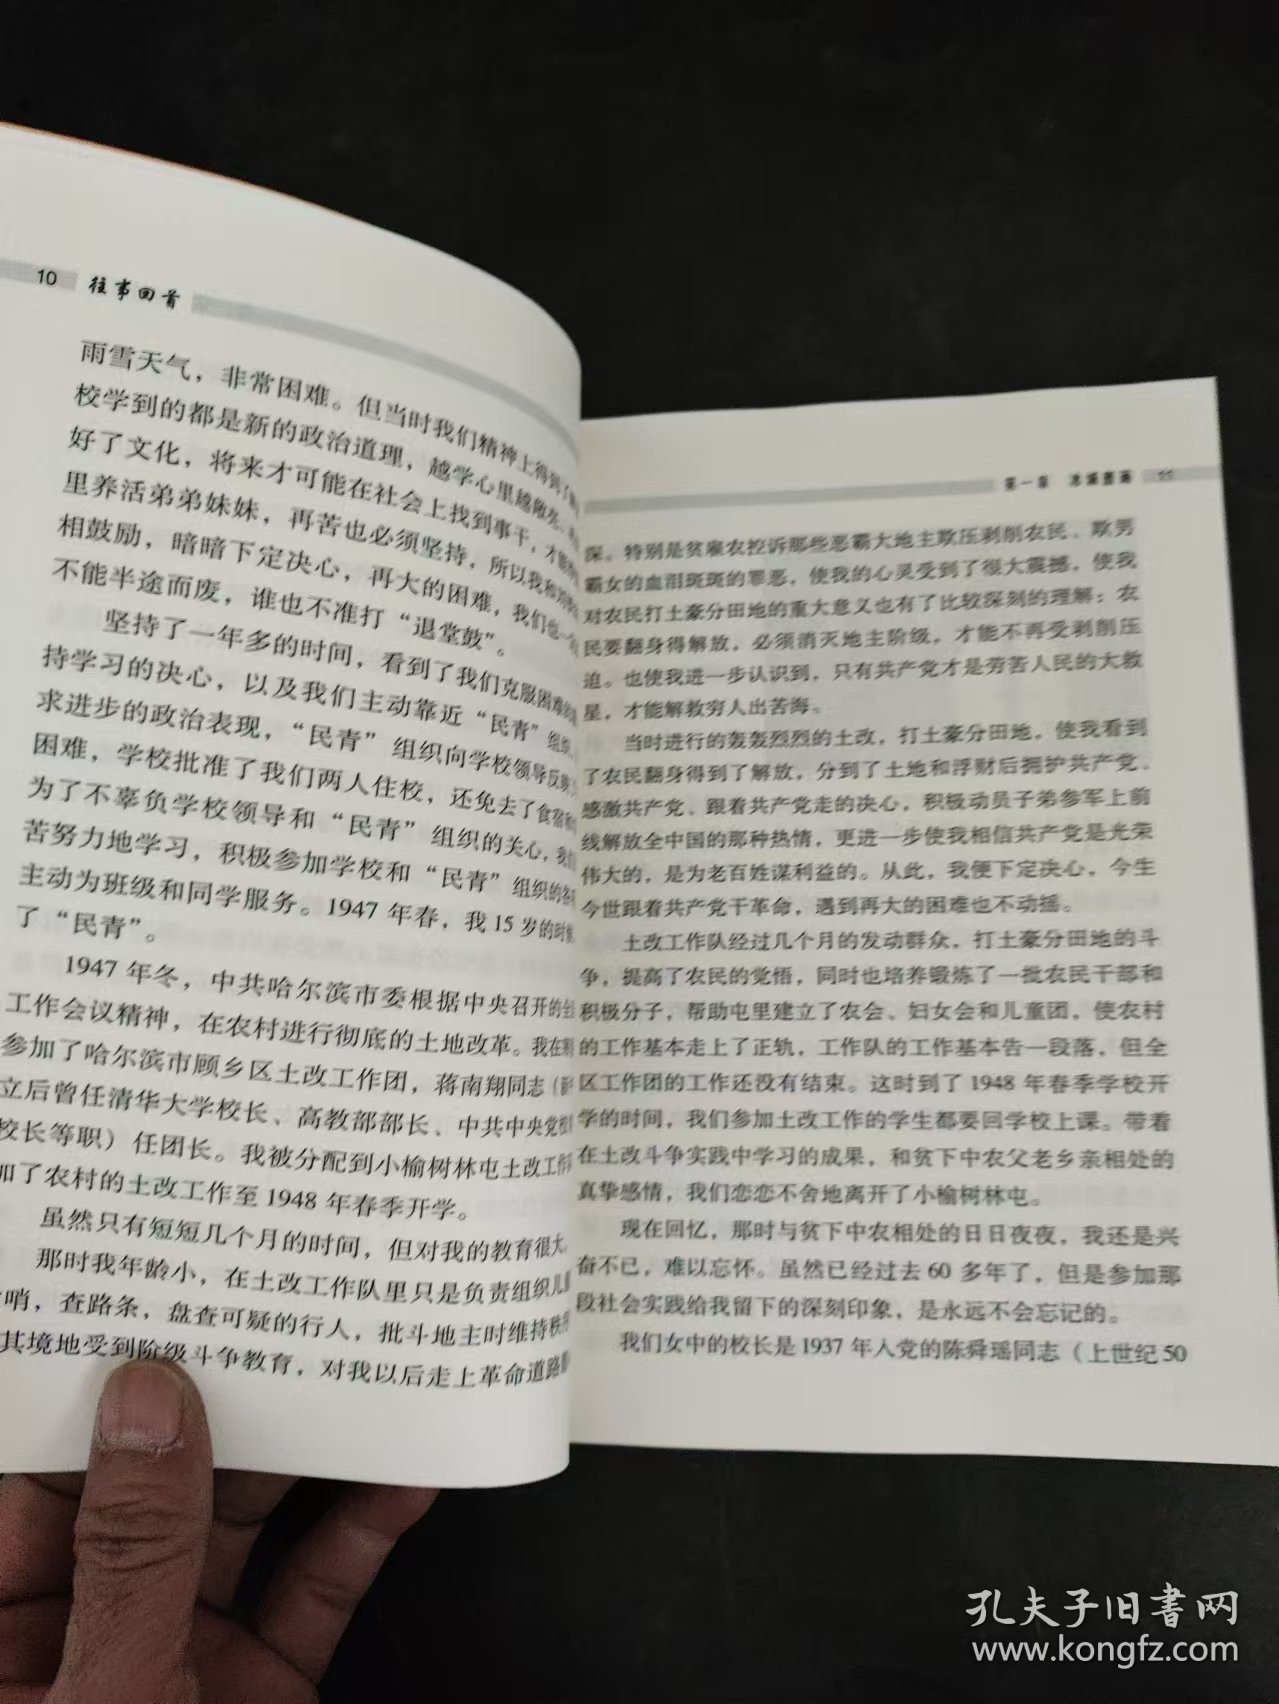 10 往事回首
雨雪天气，非常困难。但当时我们精神上得到了
校学到的都是新的政治道理，越学心里越敞亮。
好了文化，将来才可能在社会上找到事干，才能
里养活弟弟妹妹，再苦也必须坚持，所以我和
相鼓励，暗暗下定决心，再大的困难，我们也一
不能半途而废，谁也不准打“退堂鼓”。
坚持了一年多的时间，看到了我们克服困难
持学习的决心，以及我们主动靠近“民青”组织
求进步的政治表现，“民青”组织向学校领导反映
困难，学校批准了我们两人住校，还免去了食宿
为了不辜负学校领导和“民青”组织的关心，我
苦努力地学习，积极参加学校和“民青”组织的各
主动为班级和同学服务。1947年春，我15岁的时
了“民青”。
1947年冬，中共哈尔滨市委根据中央召开的全
工作会议精神，在农村进行彻底的土地改革。我在
参加了哈尔滨市顾乡区土改工作团，蒋南翔同志（
立后曾任清华大学校长、高教部部长、中共中央党校
校长等职）任团长。我被分配到小榆树林屯土改工作
加了农村的土改工作至1948年春季开学。
虽然只有短短几个月的时间，但对我的教育很大。
那时我年龄小，在土改工作队里只是负责组织儿
哨，查路条，盘查可疑的行人，批斗地主时维持秩
其境地受到阶级斗争教育，对我以后走上革命道路
第一章 11
深。特别是贫雇农控诉那些恶霸大地主欺压剥削农民、欺男
霸女的血泪斑斑的罪恶，使我的心灵受到了很大震撼，使我
对农民打土豪分田地的重大意义也有了比较深刻的理解：农
民要翻身得解放，必须消灭地主阶级，才能不再受剥削压
迫。也使我进一步认识到，只有共产党才是劳苦人民的大救
星，才能解救穷人出苦海。
当时进行的轰轰烈烈的土改，打土豪分田地，使我看到
了农民翻身得到了解放，分到了土地和浮财后拥护共产党、
感激共产党、跟着共产党走的决心，积极动员子弟参军上前
线解放全中国的那种热情，更进一步使我相信共产党是光荣
伟大的，是为老百姓谋利益的。从此，我便下定决心，今生
今世跟着共产党干革命，遇到再大的困难也不动摇。
土改工作队经过几个月的发动群众，打土豪分田地的斗
争，提高了农民的觉悟，同时也培养锻炼了一批农民干部和
积极分子，帮助屯里建立了农会、妇女会和儿童团，使农村
的工作基本走上了正轨，工作队的工作基本告一段落，但全
区工作团的工作还没有结束。这时到了1948年春季学校开
学的时间，我们参加土改工作的学生都要回学校上课。带着
在土改斗争实践中学习的成果，和贫下中农父老乡亲相处的
真挚感情，我们恋恋不舍地离开了小榆树林屯。
现在回忆，那时与贫下中农相处的日日夜夜，我还是兴
奋不已，难以忘怀。虽然已经过去60多年了，但是参加那
段社会实践给我留下的深刻印象，是永远不会忘记的。
我们女中的校长是1937年入党的陈舜瑶同志（上世纪50
孔夫子旧书网
www.kongfz.com